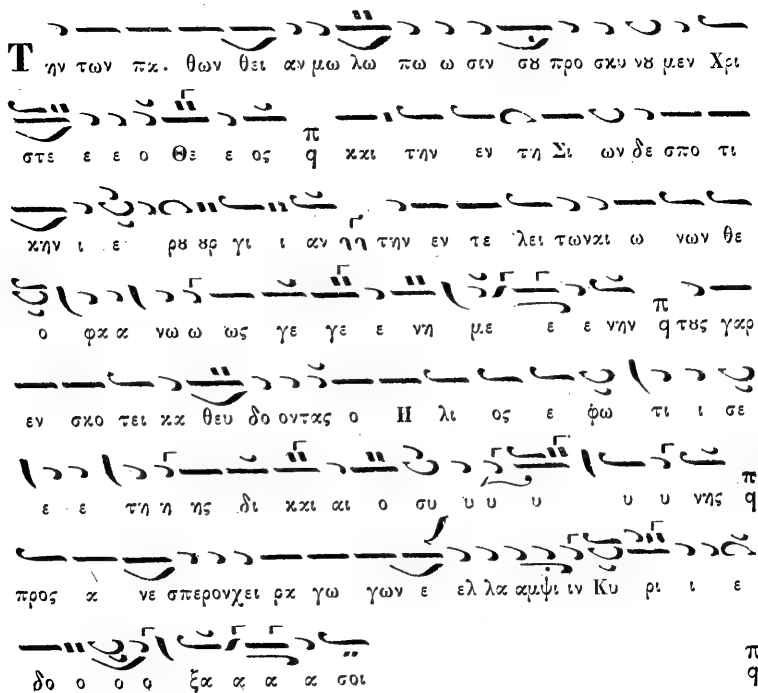 Την των πα. θων θει αν μω λω πω ω σιν σȣ προ σκυ νȣ μεν Χρι
στε ε ε ο Θε ε ος π q και την εν τη Σι ων δε σπο τι
κην ι ε ρȣ ȣρ γι ι αν την εν τε λει των και ω νων θε
ο φα α νω ω ως γε γε ε νη με ε ε νην π q τους γαρ
εν σκο τει κα θευ δο οντας ο Η λι ος ε φω τι ι σε
ε ε τη η ης δι και αι ο συ υ υ υ υ υ νης π q
προς α νε σπερον χει ρα γω γων ε ελ λα αμψι ιν Κυ ρι ι ε
δο ο ο ο ξα α α α σοι π q